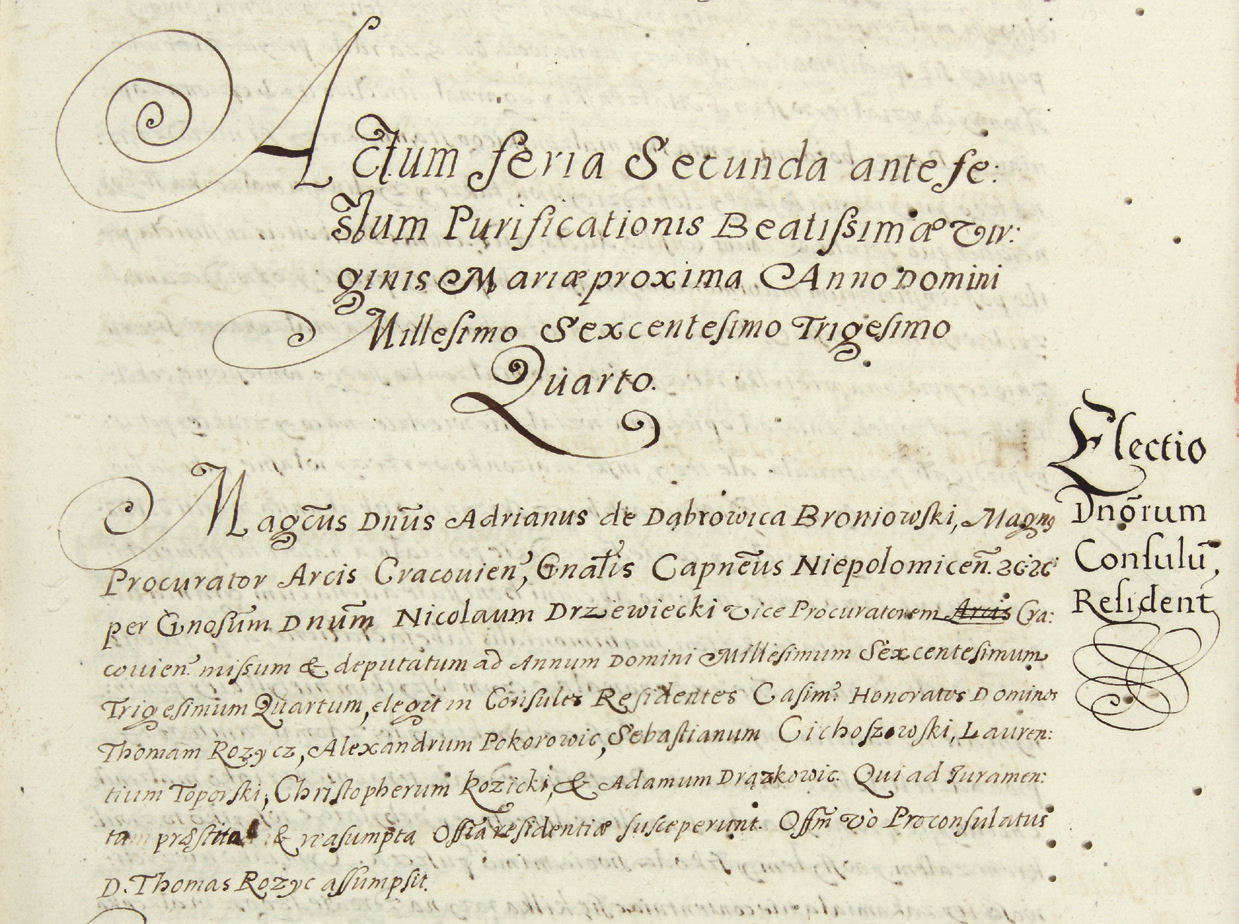 Actum feria Secunda ante fe:
stum Purificationis Beatissimæ Vir:
ginis Mariæ proxima Anno Domini
Millesimo Sexcentesimo Trigesimo
Quarto.
Electio
Dnōrum
Consulū,
Resident
Magcūs Dnūs Adrianus de Dąbrowica Broniowski, Magnɢ
Procurator Arcis Cracovień, Gnalis Capnēus Niepolomiceñ. &c &c
per Gnosūm Dnūm Nicolaum Drzewiecki vice Procuratorem Arcis Cra:
covień missum & deputatum ad Annum Domini Millesimum Sexcentesimum
Trigesimum Quartum, elegit in Consules Residentes Casim: Honoratos Dominos
Thomam Rozycz, Alexandrum Pokorowic, Sebastianum Cichoszowski, Lauren:
tium Toporski, Christopherum Kozicki, & Adamum Drązkowic. Qui ad Juramen:
tum præstita & reasumpta Offīa residentiæ susceperunt. Offm̄ vo Proconsulatus
D. Thomas Rozyc assumpsit.